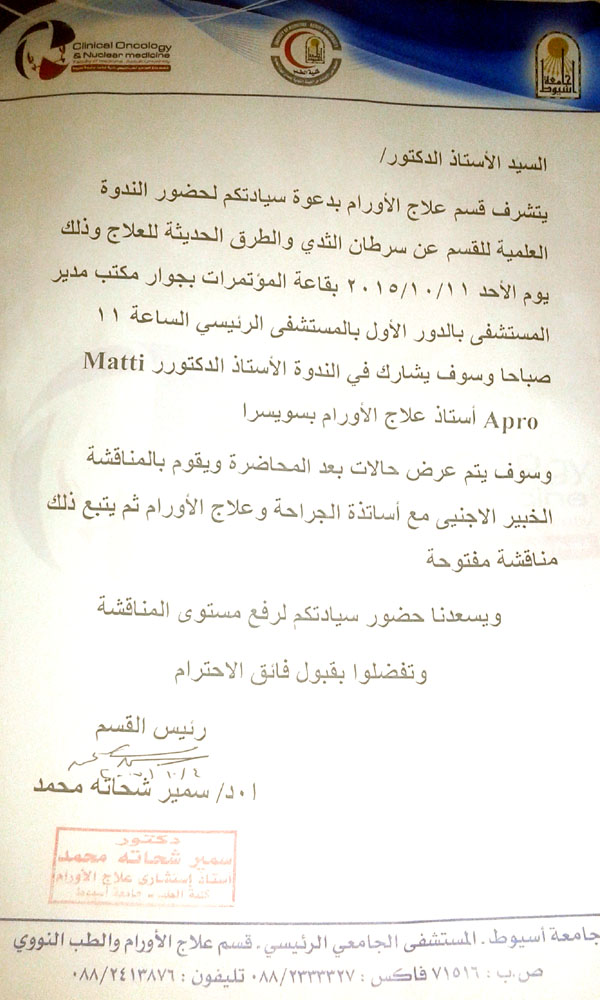 Clinical Oncology
& Nuclear medicine
كلية الطب
جامعة
أسيوط
السيد الأستاذ الدكتور/
يتشرف قسم علاج الأورام بدعوة سيادتكم لحضور الندوة
العلمية للقسم عن سرطان الثدي والطرق الحديثة للعلاج وذلك
يوم الأحد ٢٠١٥/١٠/١١ بقاعة المؤتمرات بجوار مكتب مدير
المستشفى بالدور الأول بالمستشفى الرئيسي الساعة ١١
صباحا وسوف يشارك في الندوة الأستاذ الدكتورر Matti
Apro أستاذ علاج الأورام بسويسرا
وسوف يتم عرض حالات بعد المحاضرة ويقوم بالمناقشة
الخبير الاجنبى مع أساتذة الجراحة وعلاج الأورام ثم يتبع ذلك
مناقشة مفتوحة
ويسعدنا حضور سيادتكم لرفع مستوى المناقشة
وتفضلوا بقبول فائق الاحترام
رئيس القسم
ا٠د/ سمير شحاته محمد
دكتور
سمير شحاته محمد
أستاذ إستشارى علاج الأورام
كلية الطب - جامعة أسيوط
جامعة أسيوط - المستشفى الجامعي الرئيسي - قسم علاج الأورام والطب النووي
ص.ب : ٧١٥١٦ فاكس : ٠٨٨/٢٣٣٣٣٢٧ تليفون : ٠٨٨/٢٤١٣٨٧٦